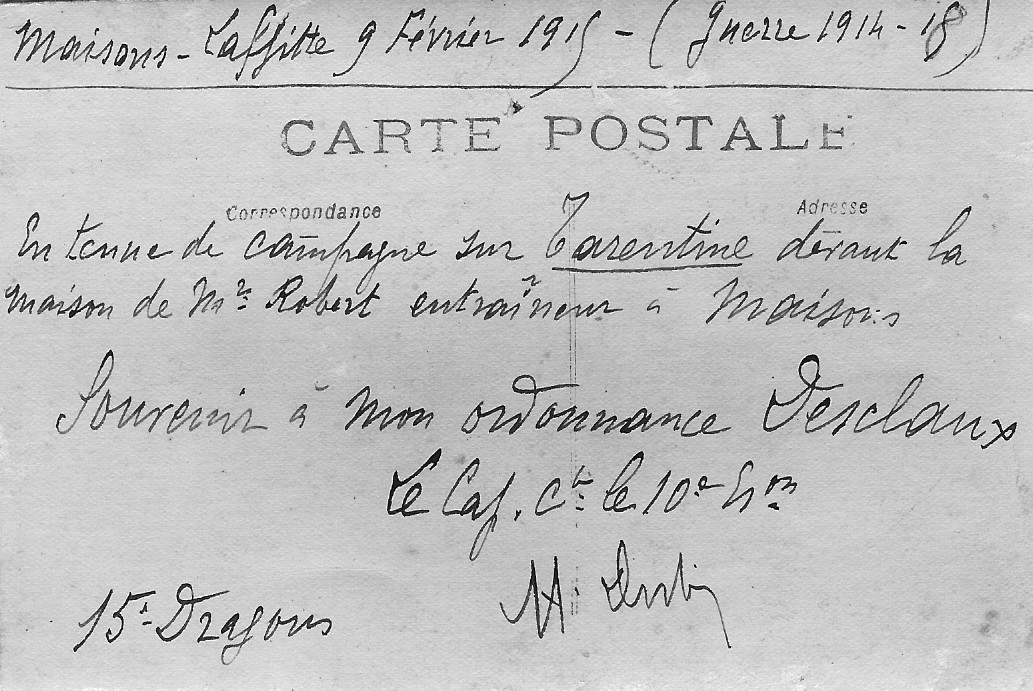 Maisons-Laffitte 9 Février 1915 - (Guerre 1914-18)
CARTE POSTALE
Correspondance Adresse
En tenue de campagne sur Tarentine devant la
maison de Mr Robert entraîneur à Maisons
Souvenir à mon ordonnance Desclaux
Le Cap. Ct le 10e Eon
15e Dragons